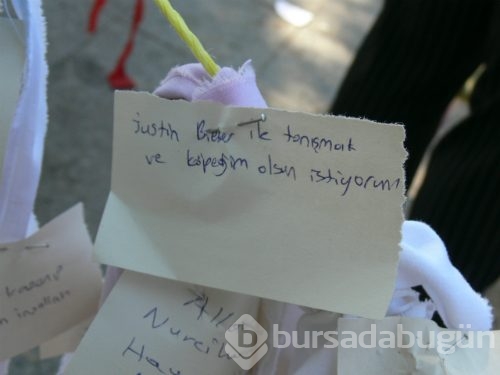 justin Bieber ile tanışmak
ve köpeğim olsun istiyorum
inşallah
Nurcih
bursadabugün